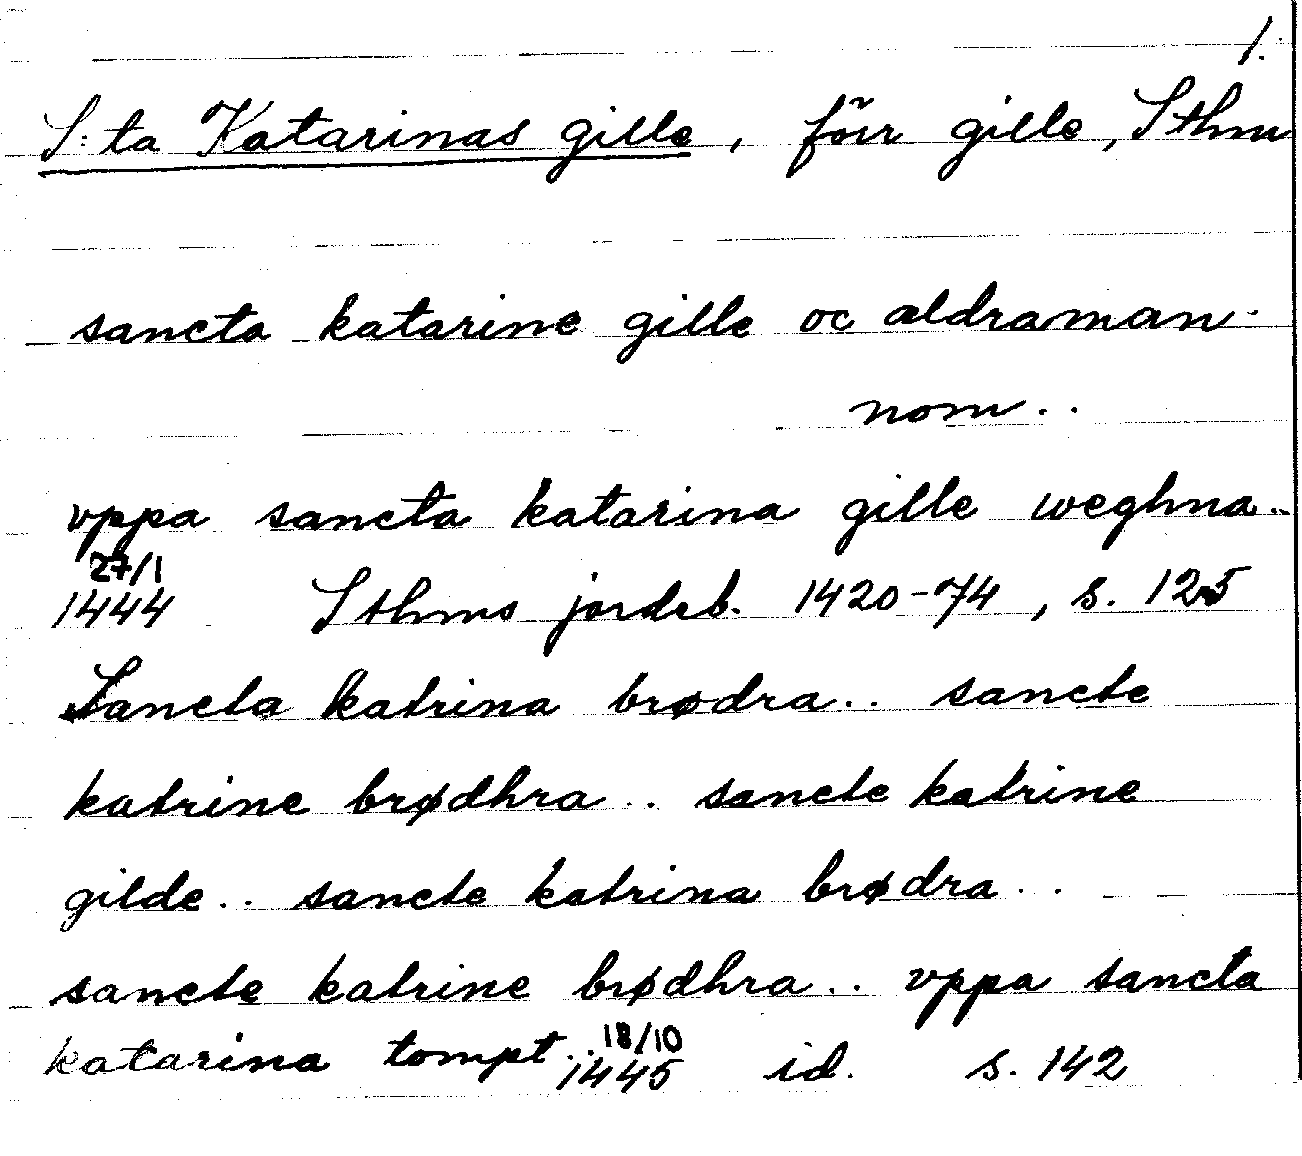 1.
S:ta Katarinas gille, förr gille, Sthm
sancta katarine gille oc aldraman-
nom..
vppa sancta katarina gille weghna..
27/1
1444 Sthms jordeb. 1420-74, s. 125
Sancta katrina brødra.. sancte
katrine brødhra.. sancte katrine
gilde.. sancte katrina brødra..
sancte katrine brødhra.. vppa sancta
katarina tompt.. 18/10 1445 id. s. 142